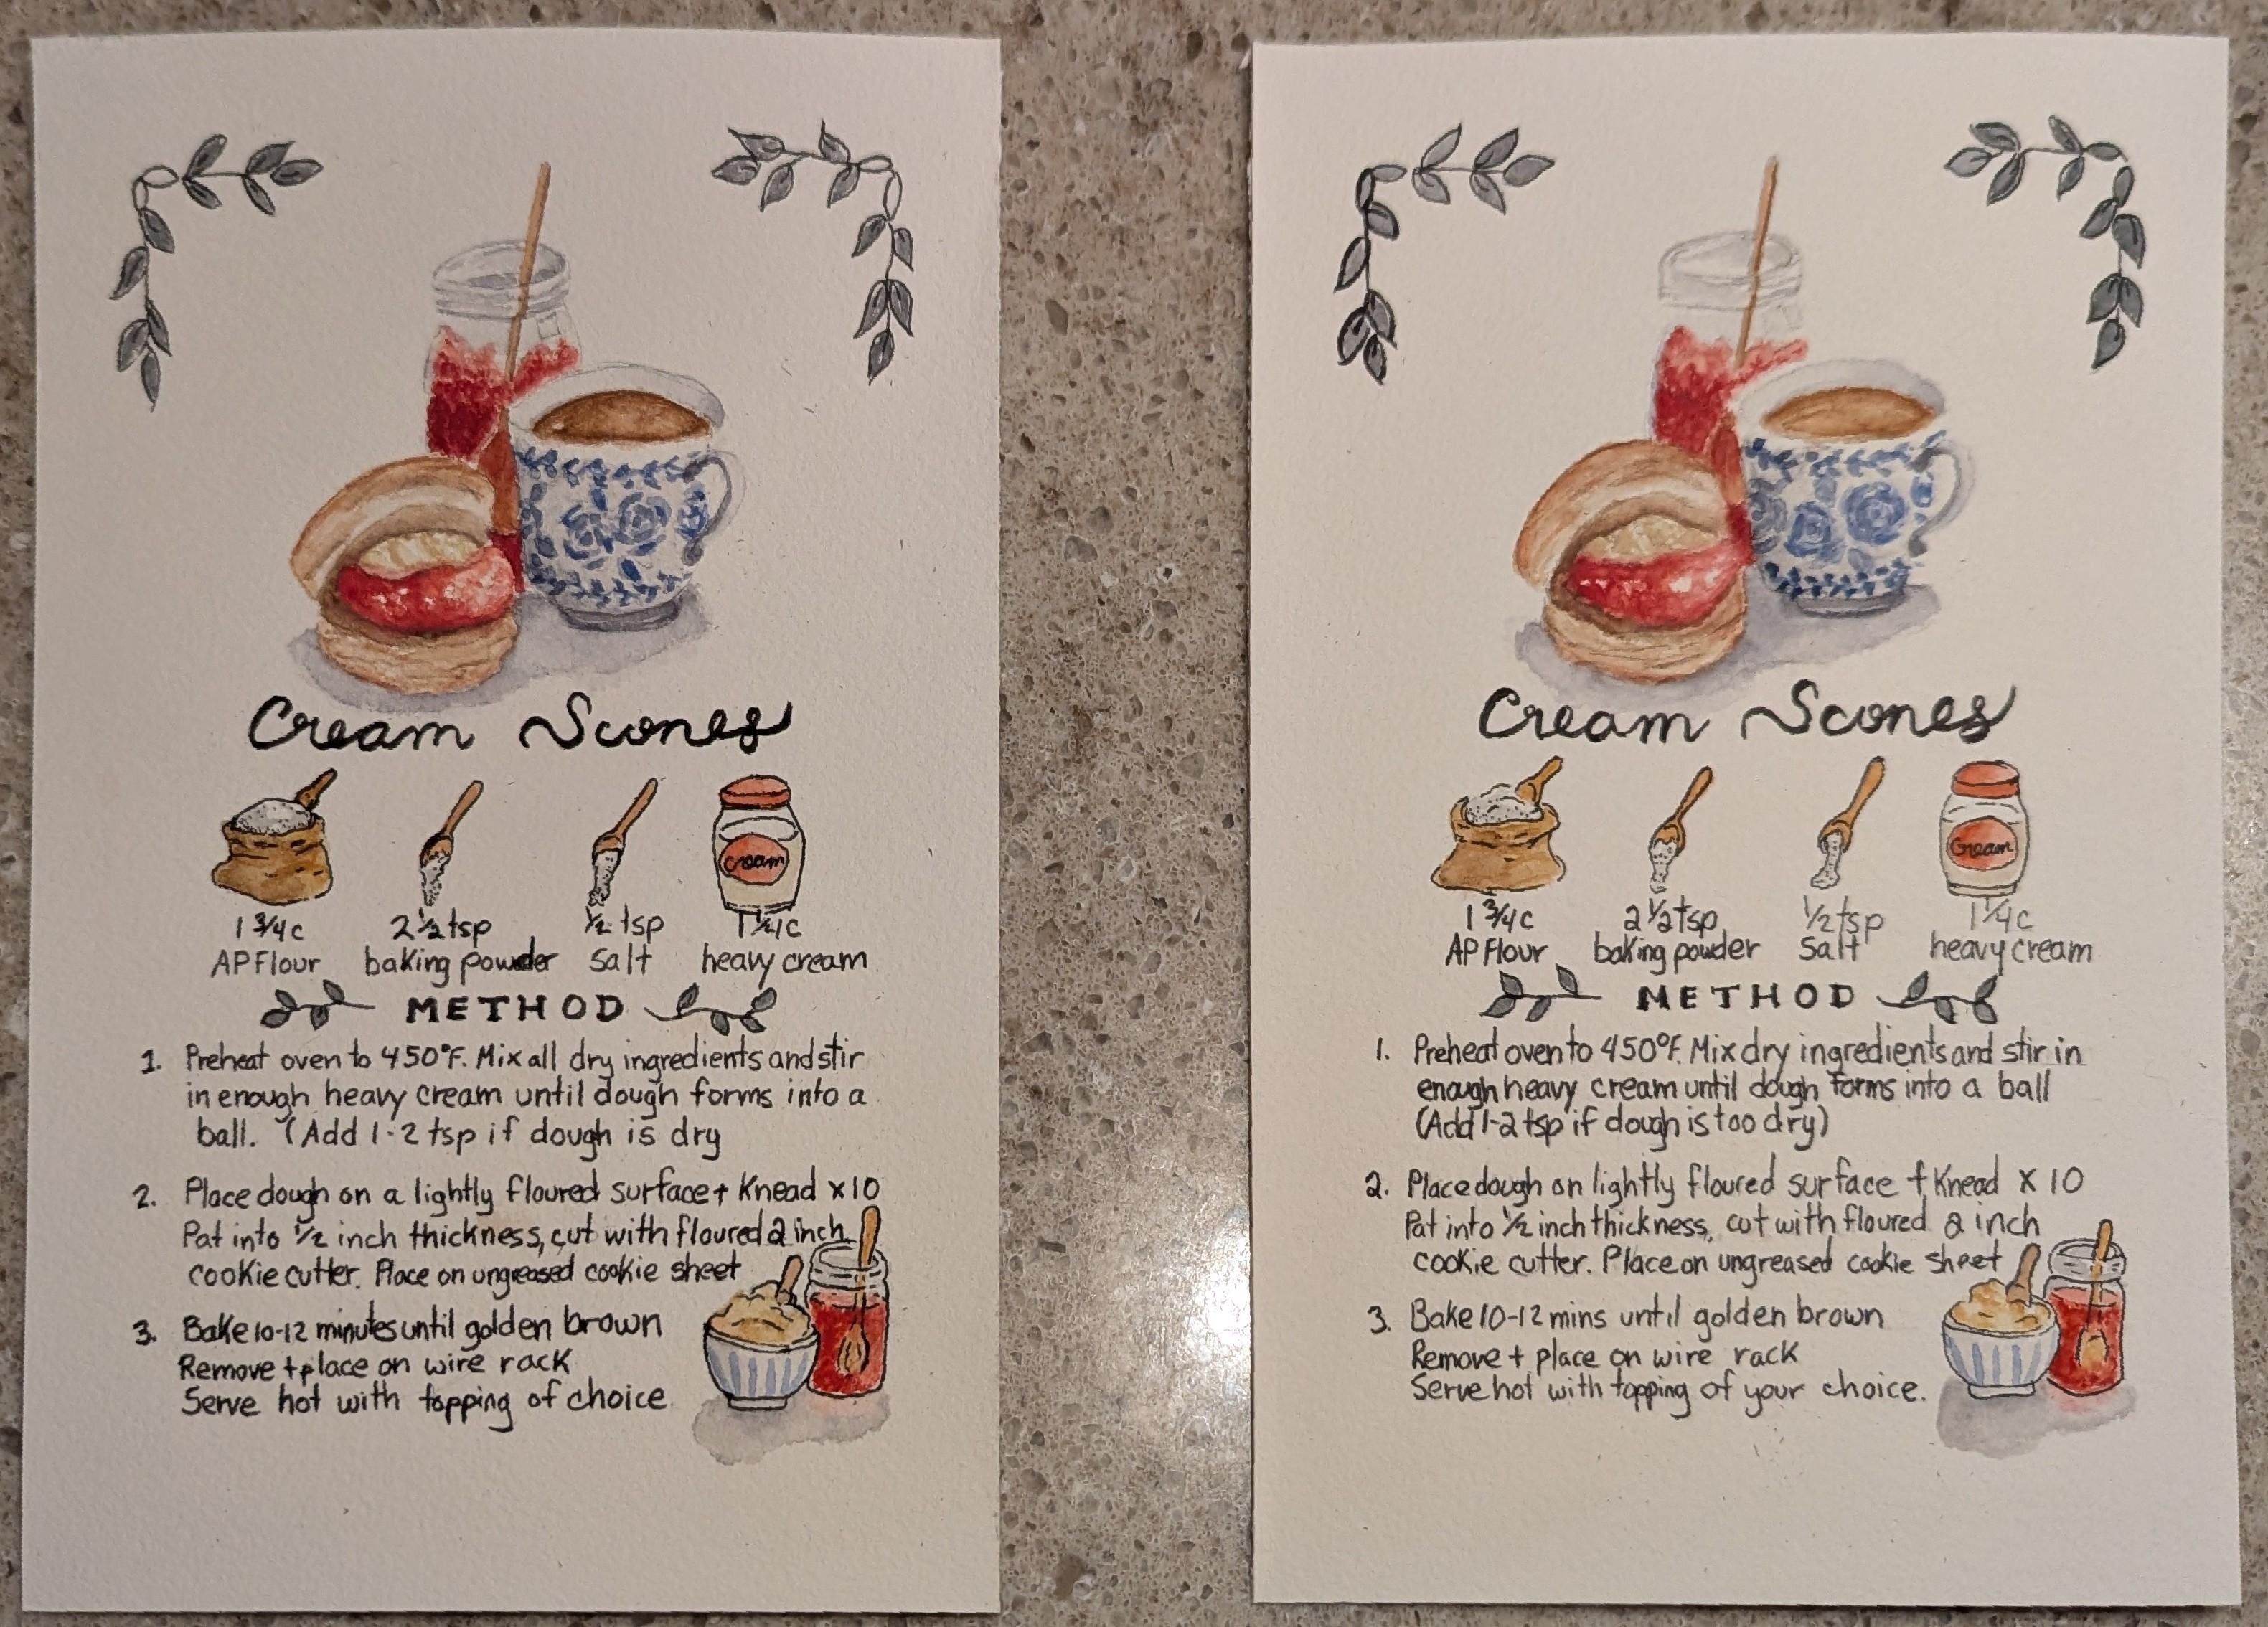 Cream Scones
cream
1 3/4 c
AP Flour
2 1/2 tsp
baking powder
1/2 tsp
salt
1 1/4 c
heavy cream
METHOD
1. Preheat oven to 450°F. Mix all dry ingredients and stir
in enough heavy cream until dough forms into a
ball. (Add 1-2 tsp if dough is dry
2. Place dough on a lightly floured surface + Knead x10
Pat into 1/2 inch thickness, cut with floured 2 inch
cookie cutter. Place on ungreased cookie sheet
3. Bake 10-12 minutes until golden brown
Remove + place on wire rack
Serve hot with topping of choice
Cream Scones
Cream
1 3/4 c
AP Flour
2 1/2 tsp
baking powder
1/2 tsp
Salt
1 1/4 c
heavy cream
METHOD
1. Preheat oven to 450°F. Mix dry ingredients and stir in
enough heavy cream until dough forms into a ball
(Add 1-2 tsp if dough is too dry)
2. Place dough on lightly floured surface + Knead x 10
Pat into 1/2 inch thickness, cut with floured 2 inch
cookie cutter. Place on ungreased cookie sheet
3. Bake 10-12 mins until golden brown
Remove + place on wire rack
Serve hot with topping of your choice.